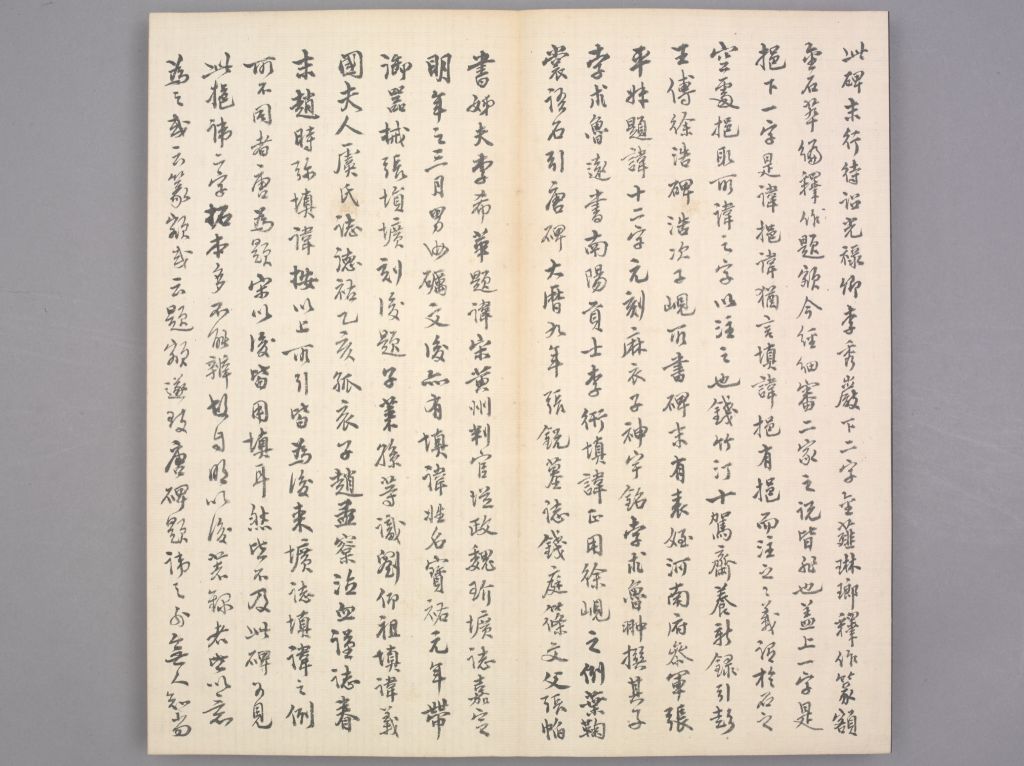 此碑末行待詔光祿卿李秀巖下二字全薤琳瑯釋作篆額
金石萃編釋作題額今經細審二家之說皆非也蓋上一字是
挹下一字是諱挹諱猶言填諱挹有挹而注之之義謂於石之
空處挹取所諱之字以注之也錢竹汀十駕齋養新錄引彭
王傅徐浩碑浩次子峴所書碑末有表姪河南府參軍張
平妹題諱十二字元刻麻衣子神宇銘孛朮魯翀撰其子
孛朮魯遠書南陽貢士李術填諱正用徐峴之例葉鞠
裳語石引唐碑大曆九年張銳墓誌錢庭篠文父張
書姊夫李希華題諱宋黃州判官從政魏玠壙誌嘉定
明年之三月男汝礪文後亦有填諱姓名寶祐元年帶
御器械張塤壙刻後題子業孫等識劉仰祖填諱義
國夫人虞氏誌德祐乙亥孤哀子趙孟窠泣血謹誌眷
末趙時弥填諱按以上所引皆為後來壙誌填諱之例
所不同者唐為題宋以後皆用填耳然皆不及此碑可見
此挹諱二字拓本多不能辨故自明以後著錄者皆以意
為之或云篆額或云題額遂致唐碑題諱之外無人知尚